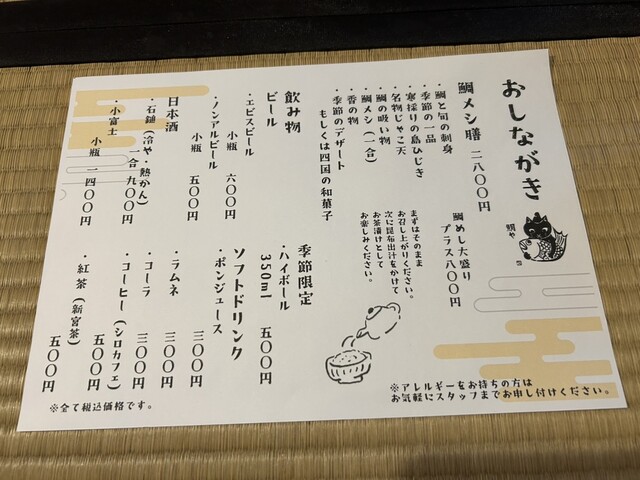 おしながき
鯛や
鯛メシ膳 二八〇〇円
・鯛と旬の刺身
・季節の一品
・寒採りの島ひじき
・名物じゃこ天
・鯛の吸い物
・鯛メシ（一合）
・香の物
・季節のデザート
もしくは四国の和菓子
鯛めし大盛り
プラス八〇〇円
まずはそのまま
お召し上がりください。
次に昆布出汁をかけて
お茶漬けとして
お楽しみください。
飲み物
ビール
・エビスビール
小瓶 六〇〇円
・ノンアルビール
小瓶 五〇〇円
日本酒
・石鎚（冷や・熱かん）
一合 九〇〇円
・小富士
小瓶 一四〇〇円
季節限定
・ハイボール
350ml 五〇〇円
ソフトドリンク
・ポンジュース
三〇〇円
・ラムネ 三〇〇円
・コーラ 三〇〇円
・コーヒー（シロカフェ）
五〇〇円
・紅茶（茶）
五〇〇円
※全て税込価格です。
※アレルギーをお持ちの方は
お気軽にスタッフまでお申し付けください。